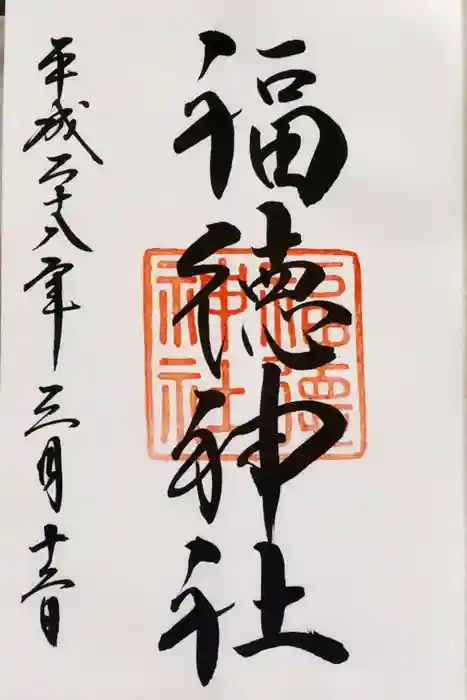 福徳神社
福徳神社
平成二十八年三月十二日